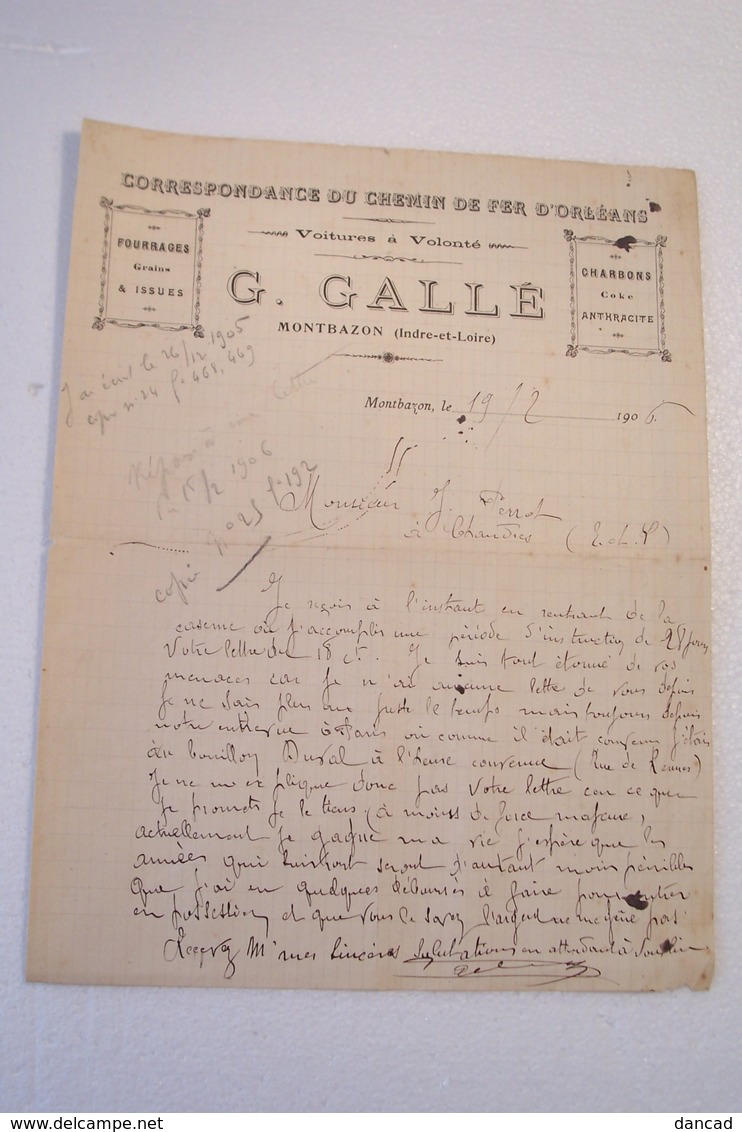 CORRESPONDANCE DU CHEMIN DE FER D'ORLÉANS
Voitures à Volonté
FOURRAGES
Grains
& ISSUES
G. GALLÉ
CHARBONS
Coke
ANTHRACITE
MONTBAZON (Indre-et-Loire)
J'ai écrit le 26/12 1905
copie n° 24 f. 468, 469
Montbazon, le 19/2 1906
Réponse à ma lettre
du 15/2 1906
copie n° 25 f° 192
Monsieur J. Perrot
à (I. et L.)
Je reçois à l'instant en rentrant de la
caserne où j'accomplis une période d'instruction de 28 jours
Votre lettre du 18 ct. Je suis tout étonné de vos
menaces car je n'ai aucune lettre de vous depuis
je ne sais plus au juste le temps mais toujours depuis
notre entrevue à Paris où comme il était convenu j'étais
au bouillon Duval à l'heure convenue (Rue de Rennes)
Je ne m'explique donc pas Votre lettre car ce que
je promets je le tiens (à moins de force majeure,
actuellement je gagne ma vie j'espère que les
années qui suivront seront d'autant moins pénibles
que j'ai eu quelques déboursés à faire pour entrer
en possession et que vous le savez l'argent ne me gêne pas
Recevez Mr mes sincères Salutations en attendant
dancad